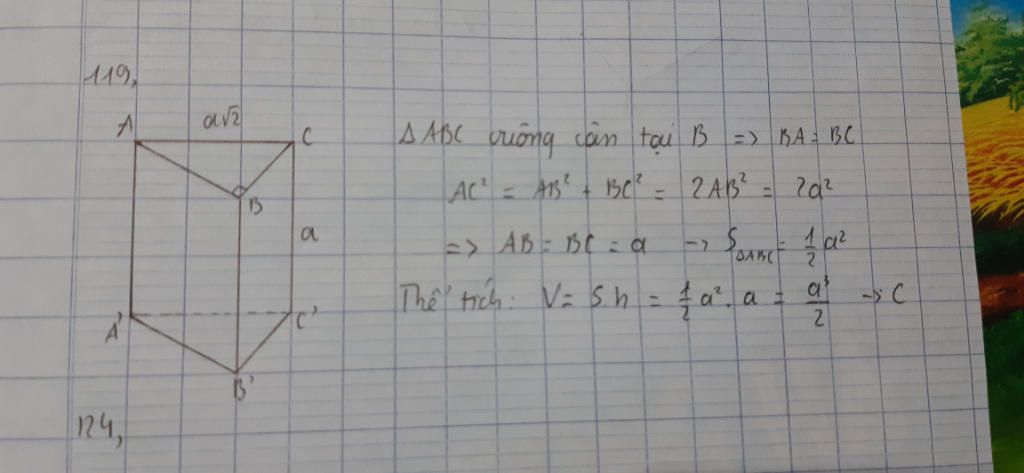 119,
A
a√2
C
B
a
A'
C'
B'
Δ ABC vuông cân tại B => BA = BC
AC² = AB² + BC² = 2AB² = 2a²
=> AB = BC = a -> S_ΔABC = 1/2 a²
Thể tích: V = S.h = 1/2 a². a = a³/2 -> C
124,